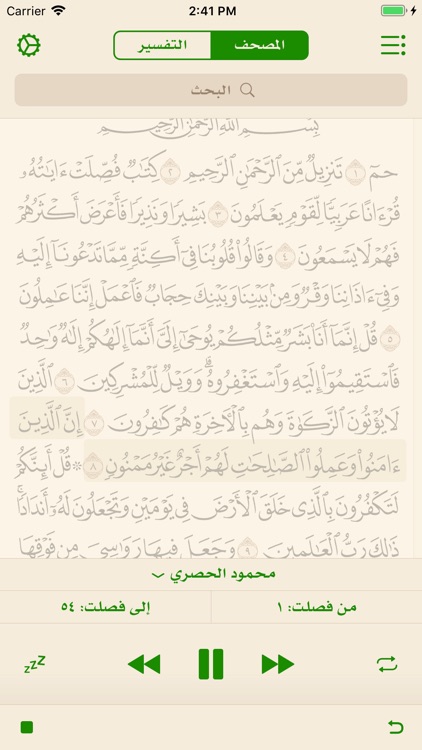 Carrier 2:41 PM
المصحف التفسير
البحث
بِسْمِ ٱللَّهِ ٱلرَّحْمَٰنِ ٱلرَّحِيمِ
حمٓ ١ تَنزِيلٌ مِّنَ ٱلرَّحْمَٰنِ ٱلرَّحِيمِ ٢ كِتَٰبٌ فُصِّلَتْ ءَايَٰتُهُۥ
قُرْءَانًا عَرَبِيًّا لِّقَوْمٍ يَعْلَمُونَ ٣ بَشِيرًا وَنَذِيرًا فَأَعْرَضَ أَكْثَرُهُمْ
فَهُمْ لَا يَسْمَعُونَ ٤ وَقَالُوا۟ قُلُوبُنَا فِىٓ أَكِنَّةٍ مِّمَّا تَدْعُونَآ إِلَيْهِ
وَفِىٓ ءَاذَانِنَا وَقْرٌ وَمِنۢ بَيْنِنَا وَبَيْنِكَ حِجَابٌ فَٱعْمَلْ إِنَّنَا عَٰمِلُونَ
٥ قُلْ إِنَّمَآ أَنَا۠ بَشَرٌ مِّثْلُكُمْ يُوحَىٰٓ إِلَىَّ أَنَّمَآ إِلَٰهُكُمْ إِلَٰهٌ وَٰحِدٌ
فَٱسْتَقِيمُوٓا۟ إِلَيْهِ وَٱسْتَغْفِرُوهُ ۗ وَوَيْلٌ لِّلْمُشْرِكِينَ ٦ ٱلَّذِينَ
لَا يُؤْتُونَ ٱلزَّكَوٰةَ وَهُم بِٱلْءَاخِرَةِ هُمْ كَٰفِرُونَ ٧ إِنَّ ٱلَّذِينَ
ءَامَنُوا۟ وَعَمِلُوا۟ ٱلصَّٰلِحَٰتِ لَهُمْ أَجْرٌ غَيْرُ مَمْنُونٍ ٨ ۞ قُلْ أَئِنَّكُمْ
لَتَكْفُرُونَ بِٱلَّذِى خَلَقَ ٱلْأَرْضَ فِى يَوْمَيْنِ وَتَجْعَلُونَ لَهُۥٓ أَندَادًا ۚ
ذَٰلِكَ رَبُّ ٱلْعَٰلَمِينَ ٩ وَجَعَلَ فِيهَا رَوَٰسِىَ مِن فَوْقِهَا
محمود الحصري
من فصلت: ١ إلى فصلت: ٥٤
zzZ